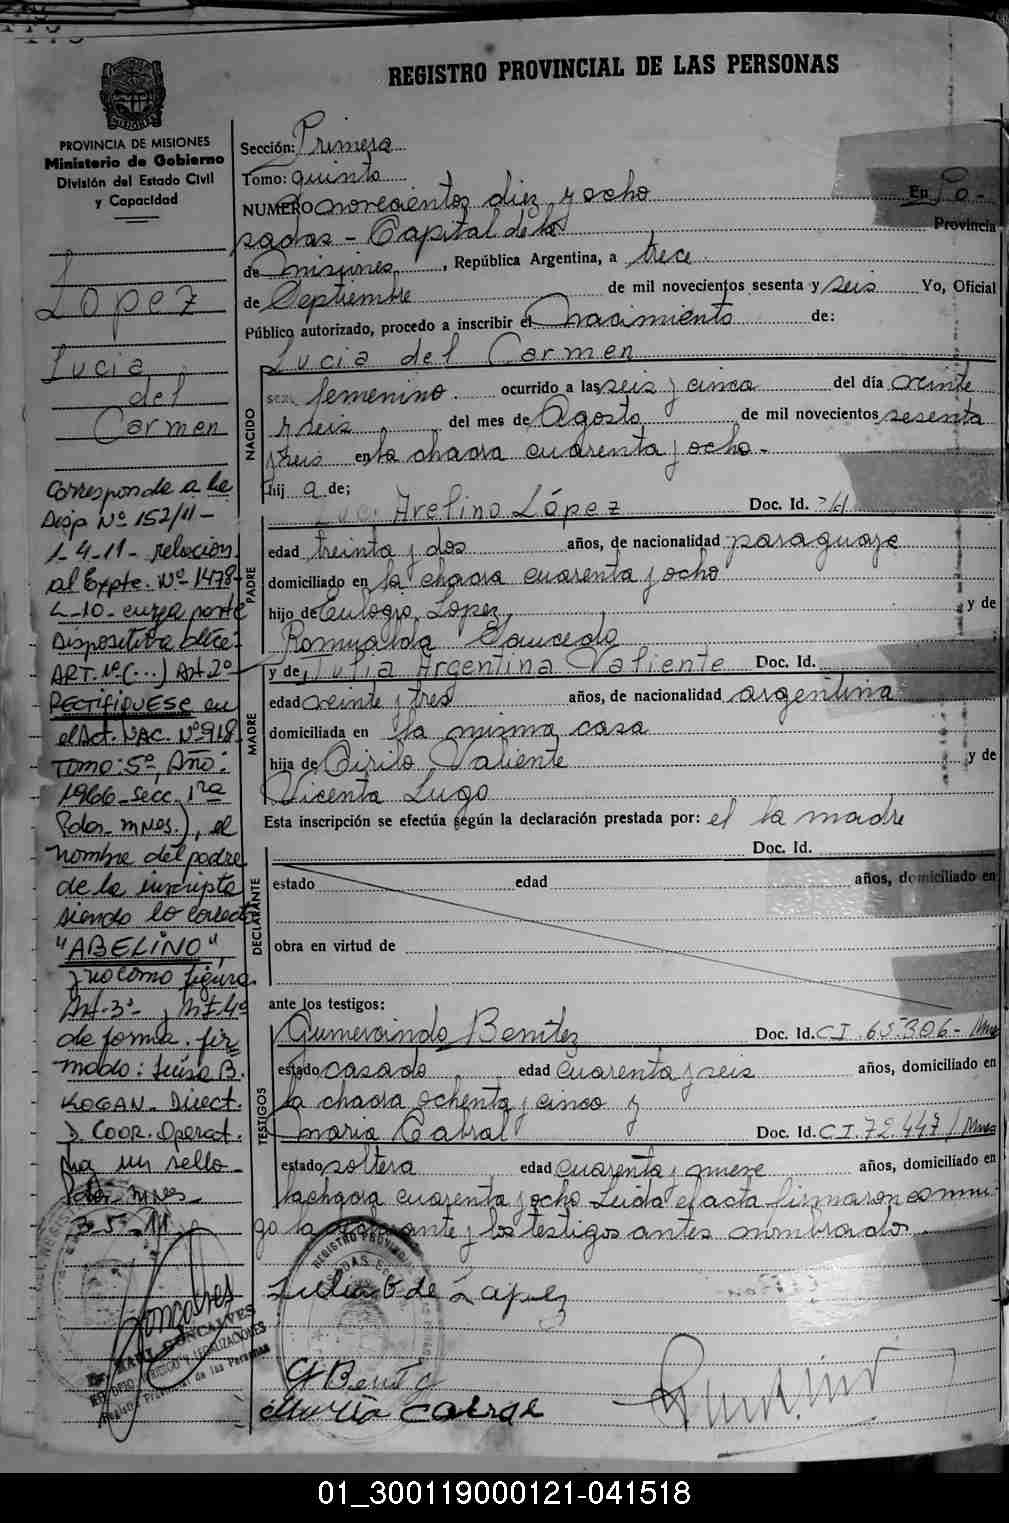 REGISTRO PROVINCIAL DE LAS PERSONAS
PROVINCIA DE MISIONES
Ministerio de Gobierno
División del Estado Civil
y Capacidad
Lopez
Lucia
del
Carmen
Corresponde a la
Disp Nº 152/11-
1-4-11- relacion
al Expte. Nº 1478-
L-10- cuya parte
Dispositiva dice:
ART. 1º (...) Art 2º
RECTIFIQUESE en
el Act. NAC. Nº 918
TOMO: 5º, Año:
1966- Secc. 1ra
Pdas- MNES.), el
nombre del padre
de la inscripta
siendo lo correcto
"ABELINO",
y no como figura
Art-3º , Art 4º
de forma. fir
mado: Luisa B.
KOGAN- Direct.
D. COOR. Operat.
Hay un sello-
Pdas- MNES-
3-5-11
Sección: Primera
Tomo: quinto
NUMERO novecientos diez y ocho En Po-
sadas - Capital de la Provincia
de misiones, República Argentina, a trece
de Septiembre de mil novecientos sesenta y seis Yo, Oficial
Público autorizado, procedo a inscribir el nacimiento de:
Lucia del Carmen
NACIDO
sexo femenino. ocurrido a las seis y cinco del día veinte
y seis del mes de Agosto de mil novecientos sesenta
y seis en la chacra cuarenta y ocho-
hij a de;
Avelino López Doc. Id.
PADRE
edad treinta y dos años, de nacionalidad paraguaya
domiciliado en la chacra cuarenta y ocho
hijo de Eulogio Lopez y de
Romualda Saucedo
y de, Julia Argentina Valiente Doc. Id.
MADRE
edad veinte y tres años, de nacionalidad argentina
domiciliada en la misma casa
hija de Cirilo Valiente y de
Vicenta Lugo
Esta inscripción se efectúa según la declaración prestada por: el la madre
Doc. Id.
DECLARANTE
estado edad años, domiciliado en
obra en virtud de
ante los testigos:
TESTIGOS
Gumercindo Benitez Doc. Id. C I. 65306- Mnes
estado casado edad cuarenta y seis años, domiciliado en
la chacra ochenta y cinco y
maria Cabral Doc. Id. C I. 72.447 / Mnes
estado soltera edad cuarenta y nueve años, domiciliado en
la chacra cuarenta y ocho Leida el acta firmaron conmi-
go la declarante y los testigos antes nombrados.
Julia V de Lopez
G Benitez
Maria Cabral
REGISTRO PROVINCIAL
Gonçalves
GONCALVES
Registro Provincial de las Personas
01_300119000121-041518